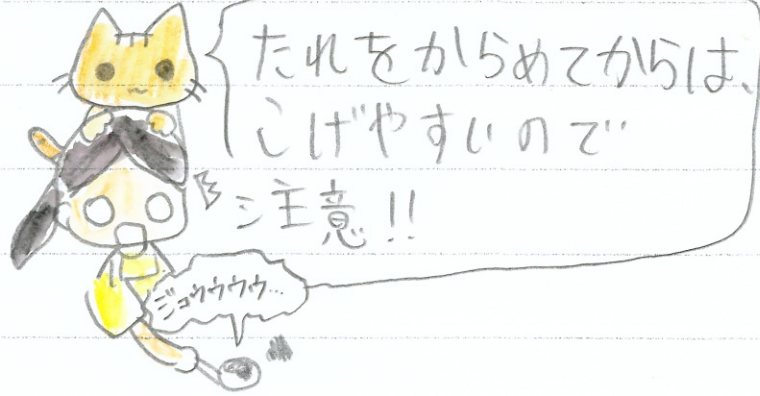 たれをからめてからは、
こげやすいので
注意!!
ジュウウウゥ…